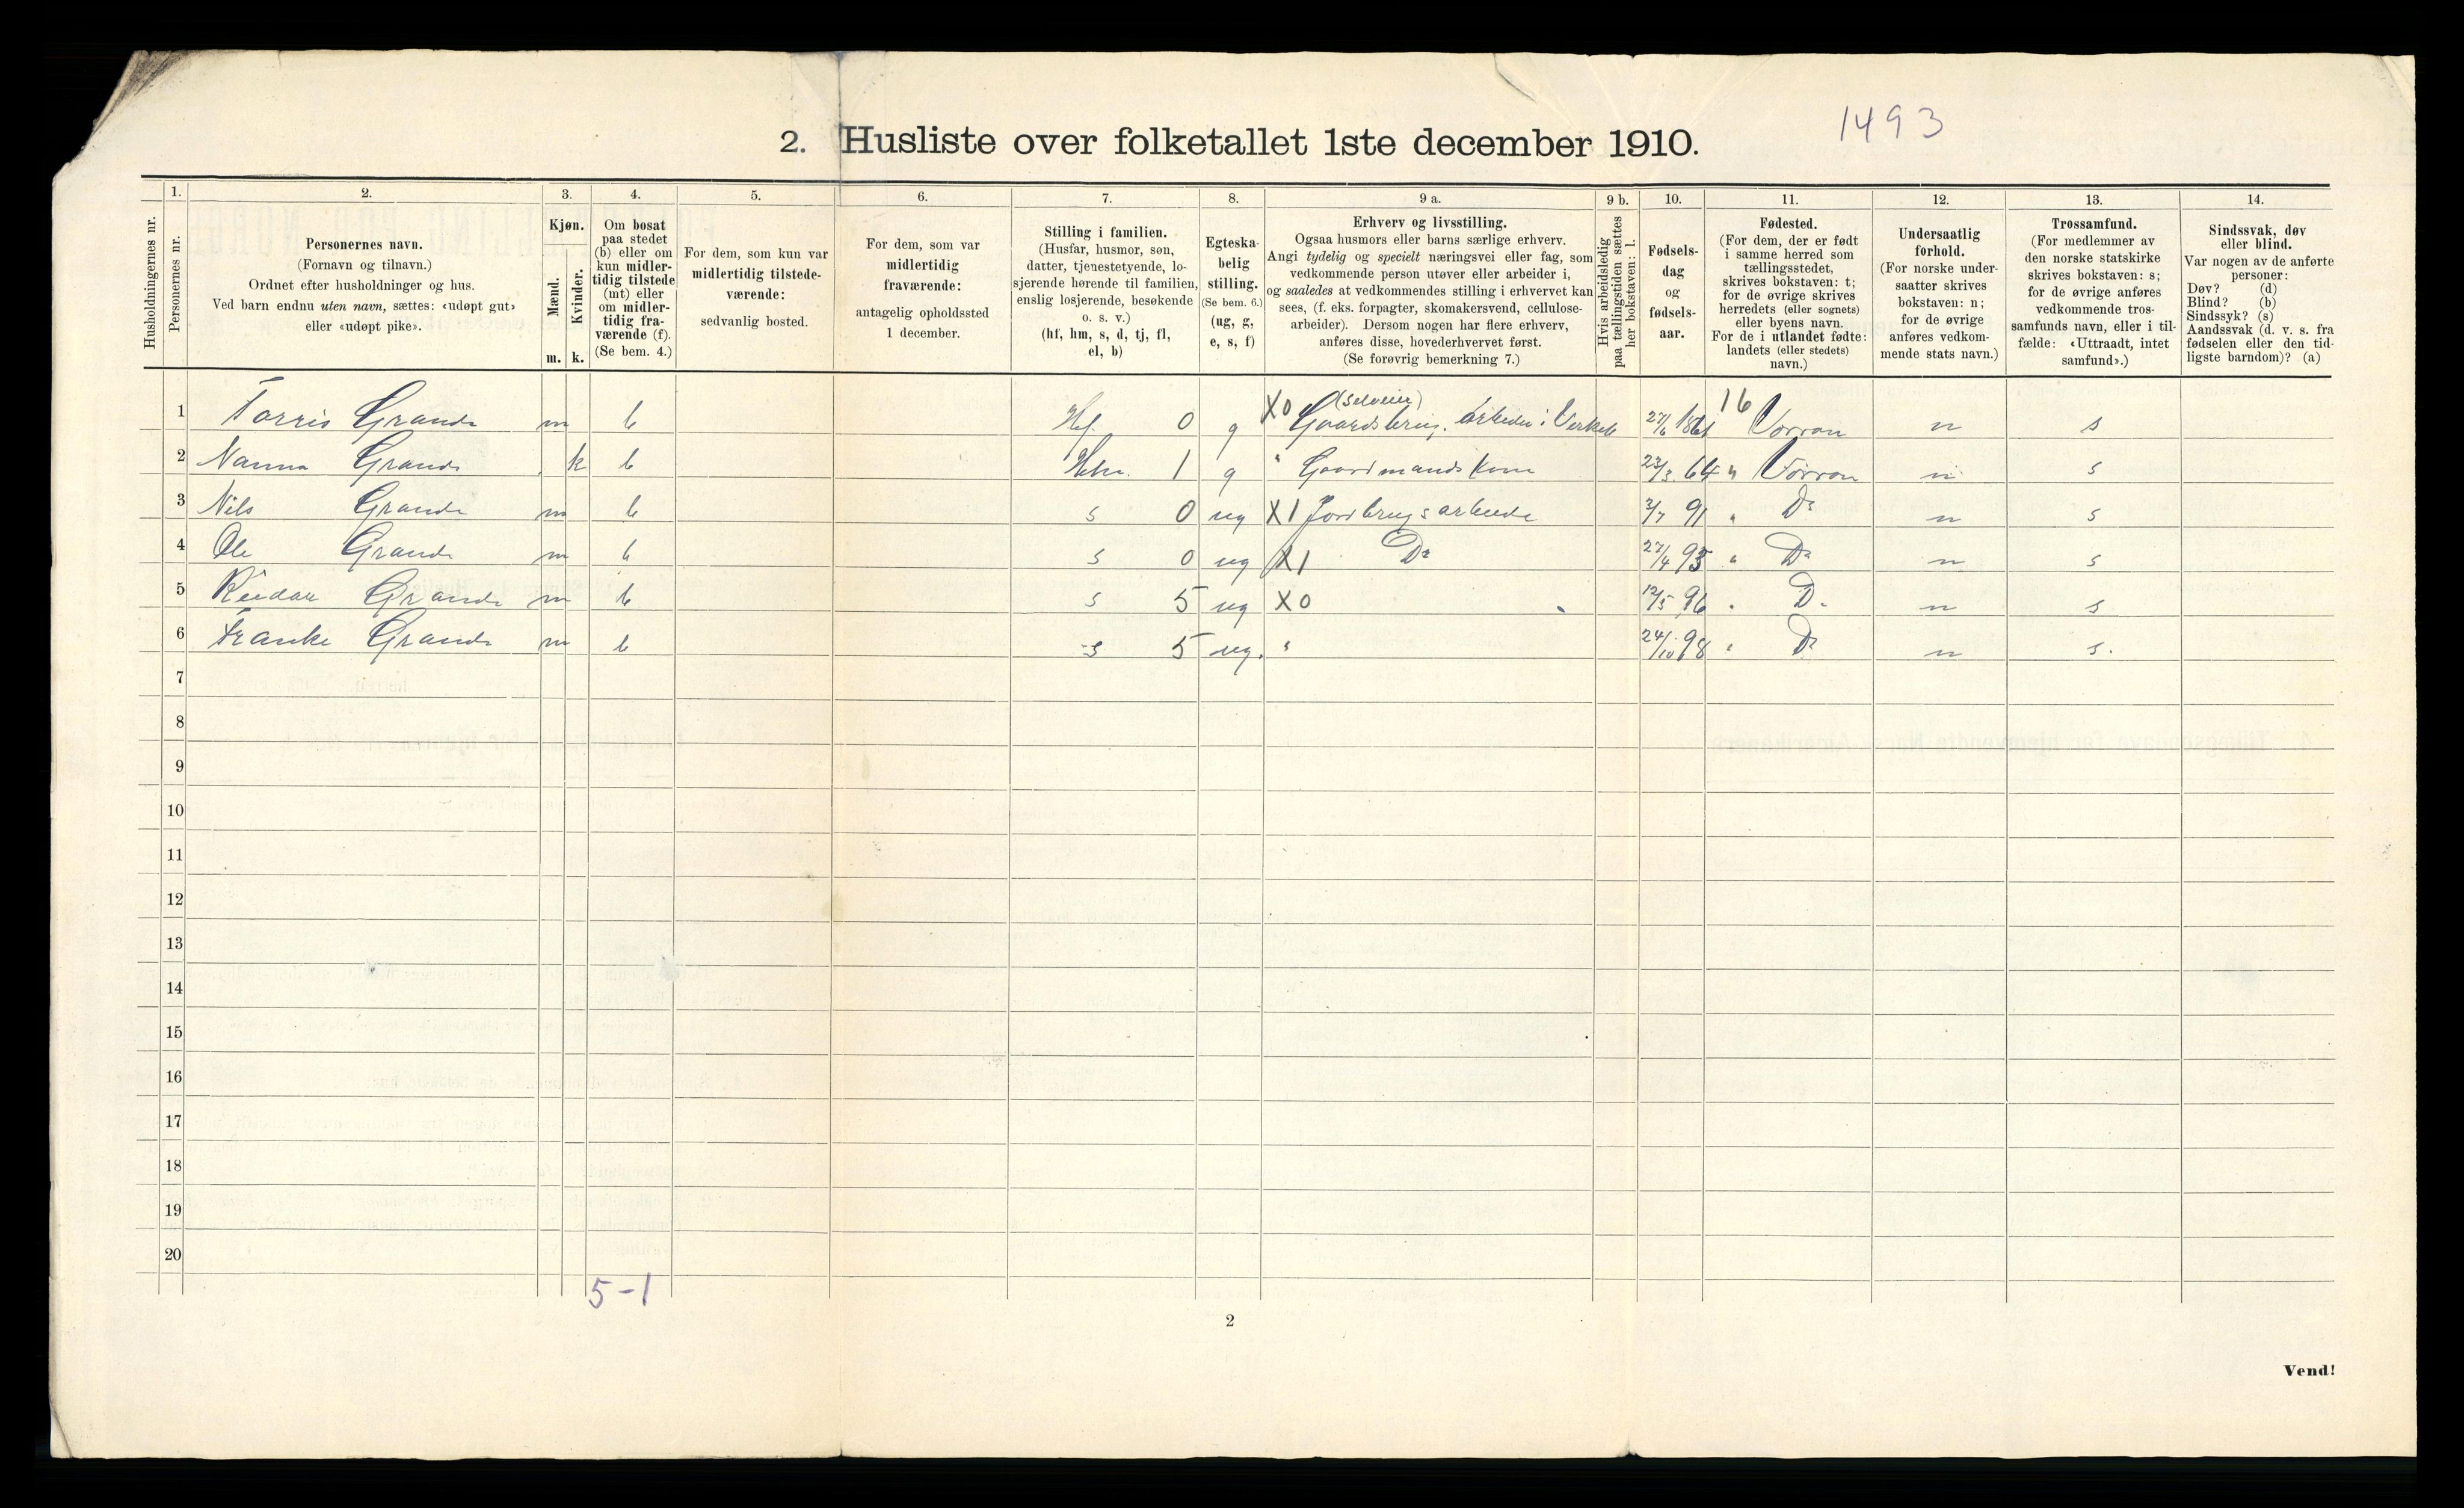 1493
2. Husliste over folketallet 1ste december 1910.
Husholdningernes nr.
1.
Personernes nr.
2.
Personernes navn.
(Fornavn og tilnavn.)
Ordnet efter husholdninger og hus.
Ved barn endnu uten navn, sættes: «udøpt gut»
eller «udøpt pike».
3.
Kjøn.
Mænd.
Kvinder.
m. k.
4.
Om bosat
paa stedet
(b) eller om
kun midler-
tidig tilstede
(mt) eller
om midler-
tidig fra-
værende (f).
(Se bem. 4.)
5.
For dem, som kun var
midlertidig tilstede-
værende:
sedvanlig bosted.
6.
For dem, som var
midlertidig
fraværende:
antagelig opholdssted
1 december.
7.
Stilling i familien.
(Husfar, husmor, søn,
datter, tjenestetyende, lo-
sjerende hørende til familien,
enslig losjerende, besøkende
o. s. v.)
(hf, hm, s, d, tj, fl,
el, b)
8.
Egteska-
belig
stilling.
(Se bem. 6.)
(ug, g,
e, s, f)
9 a.
Erhverv og livsstilling.
Ogsaa husmors eller barns særlige erhverv.
Angi tydelig og specielt næringsvei eller fag, som
vedkommende person utøver eller arbeider i,
og saaledes at vedkommendes stilling i erhvervet kan
sees, (f. eks. forpagter, skomakersvend, cellulose-
arbeider). Dersom nogen har flere erhverv,
anføres disse, hovederhvervet først.
(Se forøvrig bemerkning 7.)
9 b.
Hvis arbeidsledig
paa tællingstiden sættes
her bokstaven: l.
10.
Fødsels-
dag
og
fødsels-
aar.
11.
Fødested.
(For dem, der er født
i samme herred som
tællingsstedet,
skrives bokstaven: t;
for de øvrige skrives
herredets (eller sognets)
eller byens navn.
For de i utlandet fødte:
landets (eller stedets)
navn.)
12.
Undersaatlig
forhold.
(For norske under-
saatter skrives
bokstaven: n;
for de øvrige
anføres vedkom-
mende stats navn.)
13.
Trossamfund.
(For medlemmer av
den norske statskirke
skrives bokstaven: s;
for de øvrige anføres
vedkommende tros-
samfunds navn, eller i til-
fælde: «Uttraadt, intet
samfund».)
14.
Sindssvak, døv
eller blind.
Var nogen av de anførte
personer:
Døv? (d)
Blind? (b)
Sindssyk? (s)
Aandssvak (d. v. s. fra
fødselen eller den tid-
ligste barndom)? (a)
(Selveier) 16
1 Torris Grande m b Hf. 0 g X0 Gaardsbrug. arbeider i Verket 27/6 1861 Værran n s
2 Nanna Grande k b Hm. 1 g " Gaardmandskone 23/3 64 " Værran n s
3 Nils Grande m b s 0 ug X1 Jordbrugsarbeide 2/7 91 " Do n s
4 Ole Grande m b s 0 ug X1 Do 27/4 93 " Do n s
5 Reidar Grande m b s 5 ug X0 12/5 96 " Do n s
6 Franke Grande m b s 5 ug. " 24/10 98 " Do n s.
7
8
9
10
11
12
13
14
15
16
17
18
19
20
5-1
2
Vend!